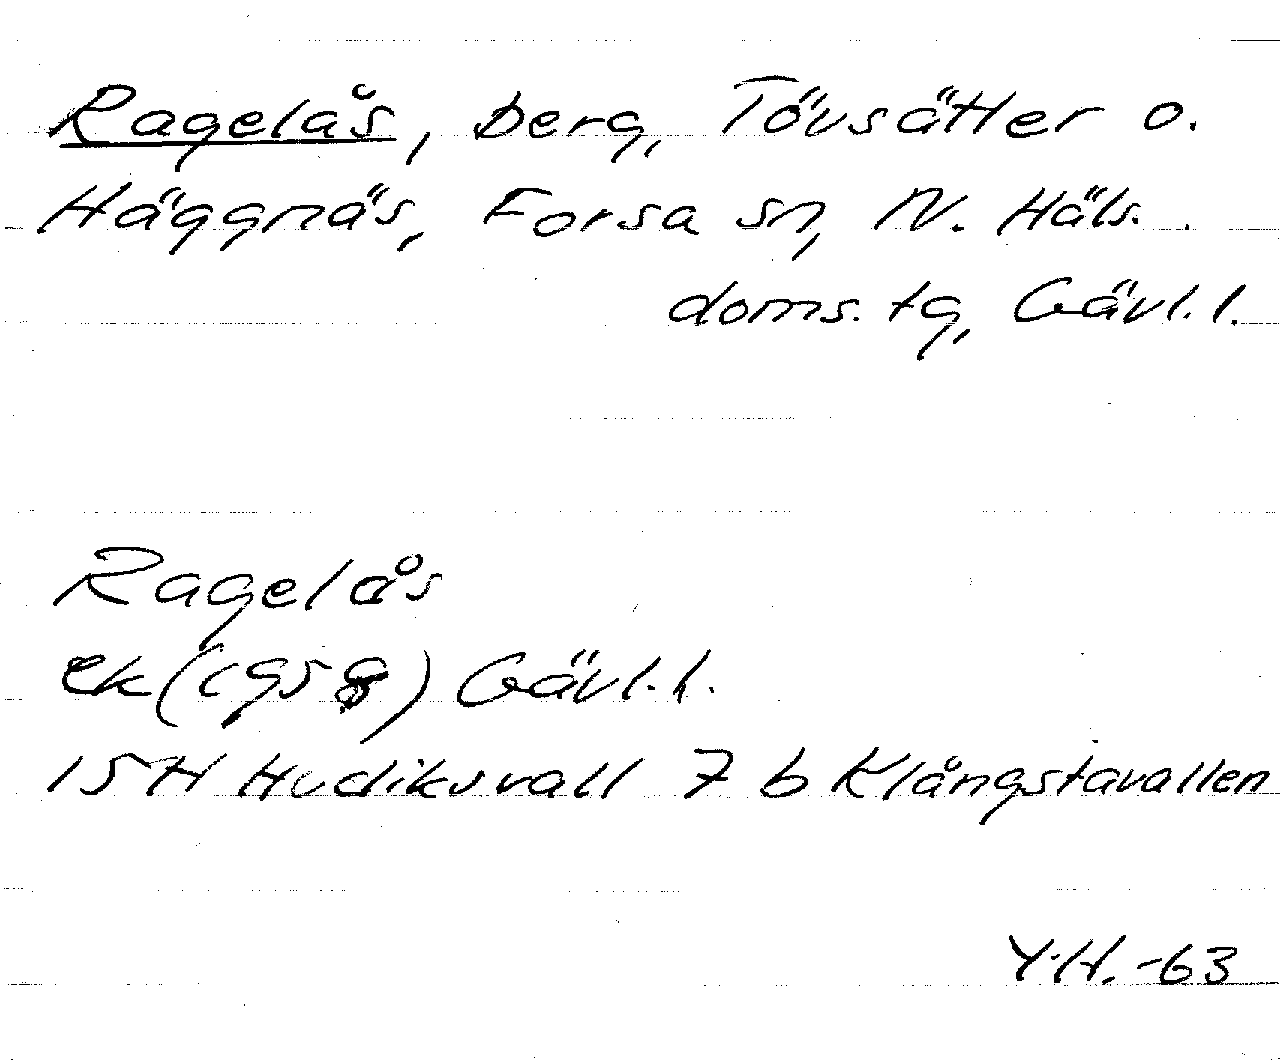 Ragelås, berg, Tövsätter o.
Häggnäs, Forsa sn, N. Häls.
doms. tg, Gävl. l.
Ragelås
ek (1959) Gävl. l.
15 H Hudiksvall 7 b Klångstavallen
Y.H. -63